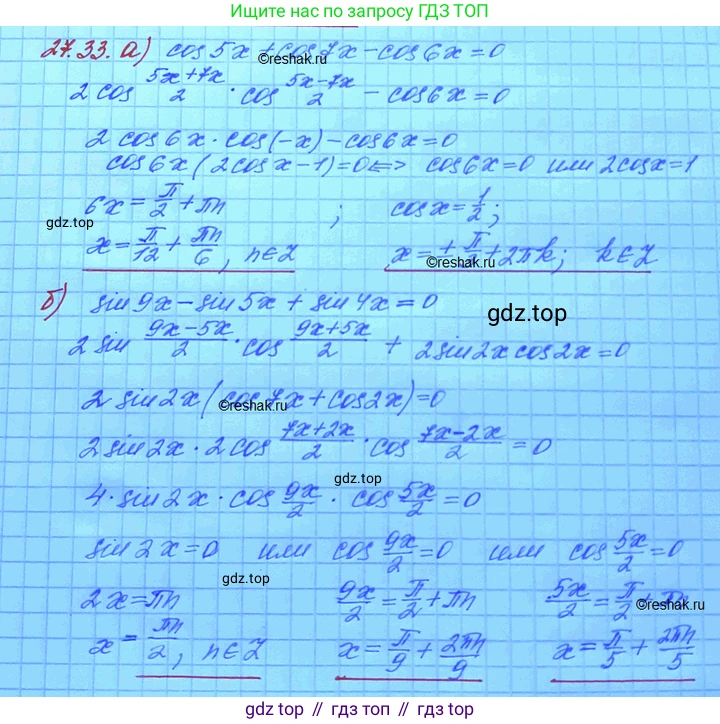 Ищите нас по запросу ГДЗ ТОП
27.33. а) cos5x + cos7x − cos6x = 0
©reshak.ru
2 cos (5x+7x)/2 · cos (5x−7x)/2 − cos6x = 0
2 cos6x · cos(−x) − cos6x = 0
cos6x (2cosx − 1) = 0 <=> cos6x = 0 или 2cosx = 1
6x = π/2 + πn ; cosx = 1/2;
gdz.top
x = π/12 + πn/6, n∈Z x = ± π/ + 2πk; k∈Z
©reshak.ru
б) sin9x − sin5x + sin4x = 0
gdz.top
2 sin (9x−5x)/2 · cos (9x+5x)/2 + 2sin2x cos2x = 0
2 sin2x (cos7x + cos2x) = 0
©reshak.ru
2 sin2x · 2 cos (7x+2x)/2 · cos (7x−2x)/2 = 0
gdz.top
4 · sin2x · cos 9x/2 · cos 5x/2 = 0
sin2x = 0 или cos 9x/2 = 0 или cos 5x/2 = 0
gdz.top
2x = πn 9x/2 = π/2 + πn 5x/2 = π/2 + πn
©reshak.ru
x = πn/2, n∈Z x = π/9 + 2πn/9 x = π/5 + 2πn/5
gdz.top // гдз топ // gdz.top